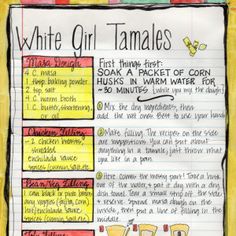 White Girl Tamales
Masa Dough
4 C. masa
1 tbsp. baking powder
2 tsp. salt
4 C. warm broth
1 C. butter, shortening,
or oil
First things first:
SOAK A PACKET OF CORN
HUSKS IN WARM WATER FOR
~30 MINUTES (while you mix the dough)
Mix the dry ingredients, then
add the wet ones. Best to use your hands
Chicken Filling
2 chicken breasts,
shredded
enchilada sauce
spices (cumin,
Make filling. The recipes on the side
are suggestions. You can put about
anything in a tamale, just throw what
you like in a pan.
Bean & Veg Filling
1 can black or pinto beans
any veggies
hot/enchilada sauce
spices (cumin,
Here comes the messy part! Take a husk
out of the water, & pat it dry with a
dish towel. Tear a small strip off the side
& reserve. Spread masa dough on the
inside, then put a line of filling in the